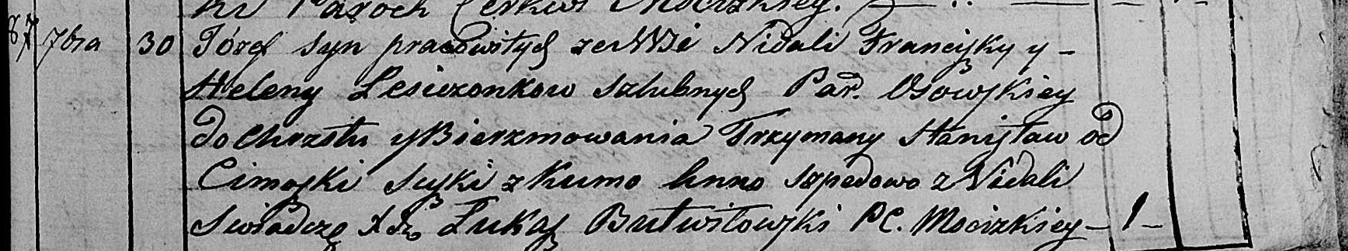 ki Paroch Cerkwi Mocizkiey.
87 7bra 30 Józef syn pracowitych ze Wsi Nidali Franciszky y
Heleny Lesiczonkow szlubnych Par. Osowskiey
do Chrztu y Bierzmowania Trzymany Stanisław od
Cimoszki z Kumo Anno Szpedowo z Nidali
Swiadczę X Łukasz Butwiłowski P.C. Mocizkiey 1